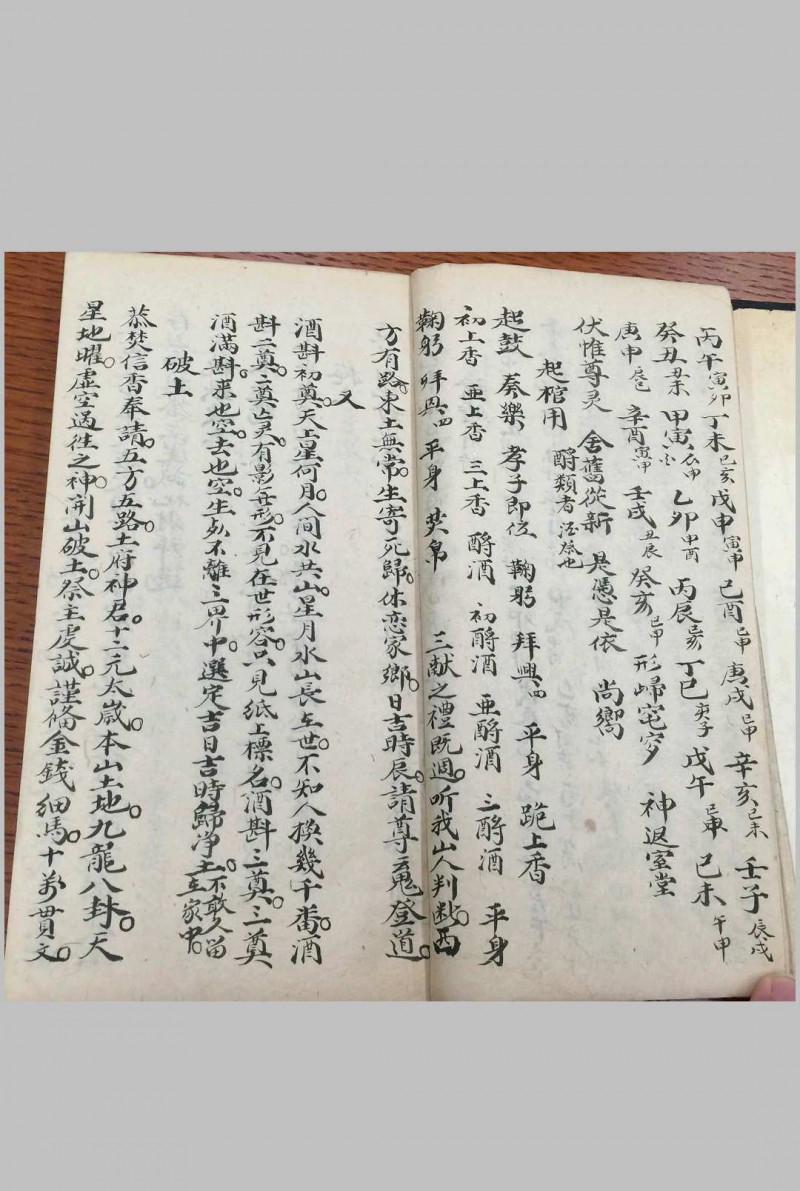 丙午寅卯丁未巳亥戊申寅申己酉 庚戌 辛亥巳未壬子辰戌
癸丑丑未甲寅 乙卯申酉丙辰 丁巳 戊午 己未午申
庚申 辛酉寅申壬戌丑辰癸亥 形歸窀穸 神返室堂
伏惟尊灵 舍舊從新 是憑是依 尚嚮
起棺用 酹類者酒祭也
起鼓 奏樂 孝子即位 鞠躬 拜興四 平身 跪上香
初上香 亜上香 三上香 酹酒 初酹酒 亜酹酒 三酹酒 平身
鞠躬 拜興四 平身 焚帛 三献之禮既週。听我山人判断。西
方有路。東土無常。生寄死歸。休恋家鄉。日吉時辰。請尊灵鬼登道。
又
酒斟初奠。天上星何月。人间水共山。星月水山長在世。不知人換幾千番。酒
斟二奠。二奠亡灵。有影無形。不見在世形容。只見纸上標名。酒斟三奠。三奠
酒满斟。来也空。去也空。生死不離三界中。選定吉日吉時歸净土。不敢久留在家中。
破土
恭焚信香奉請。五方五路。土府神君。十二元太歲。本山土地。九龍八卦。天
星地曜。虛空过徃之神。開山破土。祭主虔誠。謹俻金錢 细馬。十萬貫文。